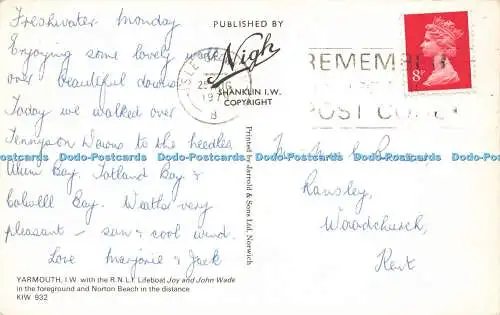 Freshwater Monday
Enjoying some lovely walks
over beautiful downs
Today we walked over
Tennyson Downs to the needles
Alum Bay, Totland Bay &
Colwell Bay. Weather very
pleasant - sun & cool wind.
Love Marjorie & Jack
YARMOUTH, I.W. with the R.N.L.I. Lifeboat Joy and John Wade
in the foreground and Norton Beach in the distance
KIW 932
PUBLISHED BY
Nigh
SHANKLIN I.W.
COPYRIGHT
Printed by Jarrold & Sons Ltd. Norwich
ISLE
197
B
REMEMBER
POST CODE
8P
Ransley,
Woodchurch,
Kent
Dodo-Postcards Dodo-Postcards Dodo-Postcards Dodo-Postcards Dodo-Postcards Dodo-Postcards